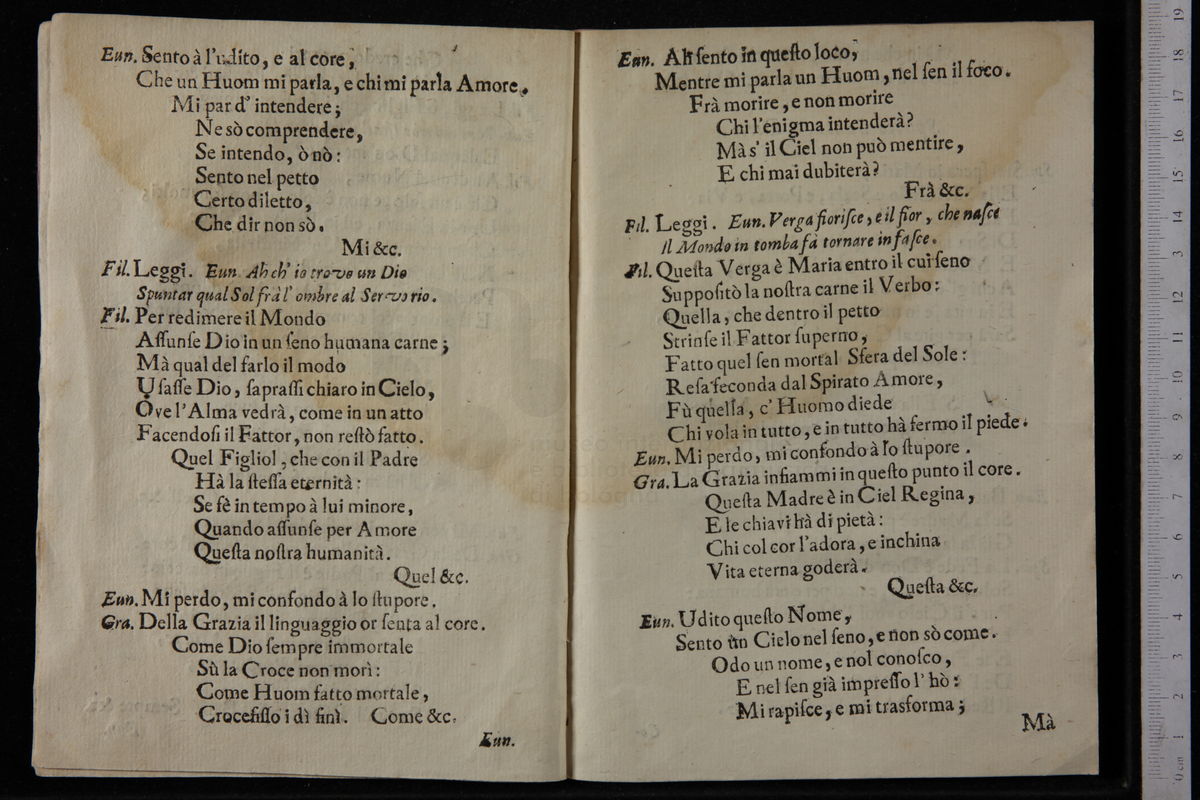 Eun. Sento à l'udito, e al core,
Che un Huom mi parla, e chi mi parla Amore.
Mi par d' intendere;
Ne sò comprendere,
Se intendo, ò nò:
Sento nel petto
Certo diletto,
Che dir non sò.
Mi &c.
Fil. Leggi. Eun. Ah ch' io trovo un Dio
Spuntar qual Sol frà l' ombre al Servo rio.
Fil. Per redimere il Mondo
Aſſunſe Dio in un ſeno humana carne;
Mà qual del farlo il modo
Uſaſſe Dio, ſapraſſi chiaro in Cielo,
Ove l'Alma vedrà, come in un atto
Facendoſi il Fattor, non reſtò fatto.
Quel Figliol, che con il Padre
Hà la ſteſſa eternità:
Se fè in tempo à lui minore,
Quando aſſunſe per Amore
Queſta noſtra humanità.
Quel &c.
Eun. Mi perdo, mi confondo à lo ſtupore.
Gra. Della Grazia il linguaggio or ſenta al core.
Come Dio ſempre immortale
Sù la Croce non morì:
Come Huom fatto mortale,
Crocefiſſo i dì finì. Come &c.
Eun.
Eun. Ah ſento in queſto loco,
Mentre mi parla un Huom, nel ſen il foco.
Frà morire, e non morire
Chi l'enigma intenderà?
Mà s' il Ciel non può mentire,
E chi mai dubiterà?
Frà &c.
Fil. Leggi. Eun. Verga fioriſce, e il fior, che naſce
Il Mondo in tomba fà tornare in faſce.
Fil. Queſta Verga è Maria entro il cui ſeno
Suppoſitò la noſtra carne il Verbo:
Quella, che dentro il petto
Strinſe il Fattor ſuperno,
Fatto quel ſen mortal Sfera del Sole:
Reſa feconda dal Spirato Amore,
Fù quella, c' Huomo diede
Chi vola in tutto, e in tutto hà fermo il piede.
Eun. Mi perdo, mi confondo à lo ſtupore.
Gra. La Grazia infiammi in queſto punto il core.
Queſta Madre è in Ciel Regina,
E le chiavi hà di pietà:
Chi col cor l'adora, e inchina
Vita eterna goderà.
Queſta &c.
Eun. Udito queſto Nome,
Sento ùn Cielo nel ſeno, e non sò come.
Odo un nome, e nol conoſco,
E nel ſen già impreſſo l' hò:
Mi rapiſce, e mi trasforma;
Mà